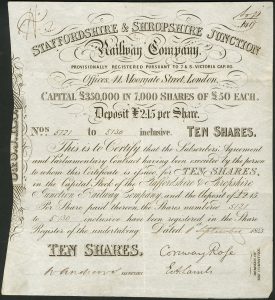 STAFFORDSHIRE & SHROPSHIRE JUNCTION
Railway Company,
PROVISIONALLY REGISTERED PURSUANT TO 7 & 8 VICTORIA CAP. 110.
Offices, 11, Moorgate Street, London.
CAPITAL £350,000 IN 7,000 SHARES OF £50 EACH.
Deposit £2.15 per Share.
Nos 5721 to 5730 inclusive. TEN SHARES.
This is to Certify that the Subscribers' Agreement
and Parliamentary Contract having been executed by the person
to whom this Certificate is issued for TEN SHARES,
in the Capital Stock of the Staffordshire & Shropshire
Junction Railway Company, and the Deposit of £2.15
Per Share paid thereon, the Shares numbered 5721
to 5730 inclusive have been registered in the Share
Register of the undertaking Dated September 1845
TEN SHARES.
Conway Rose